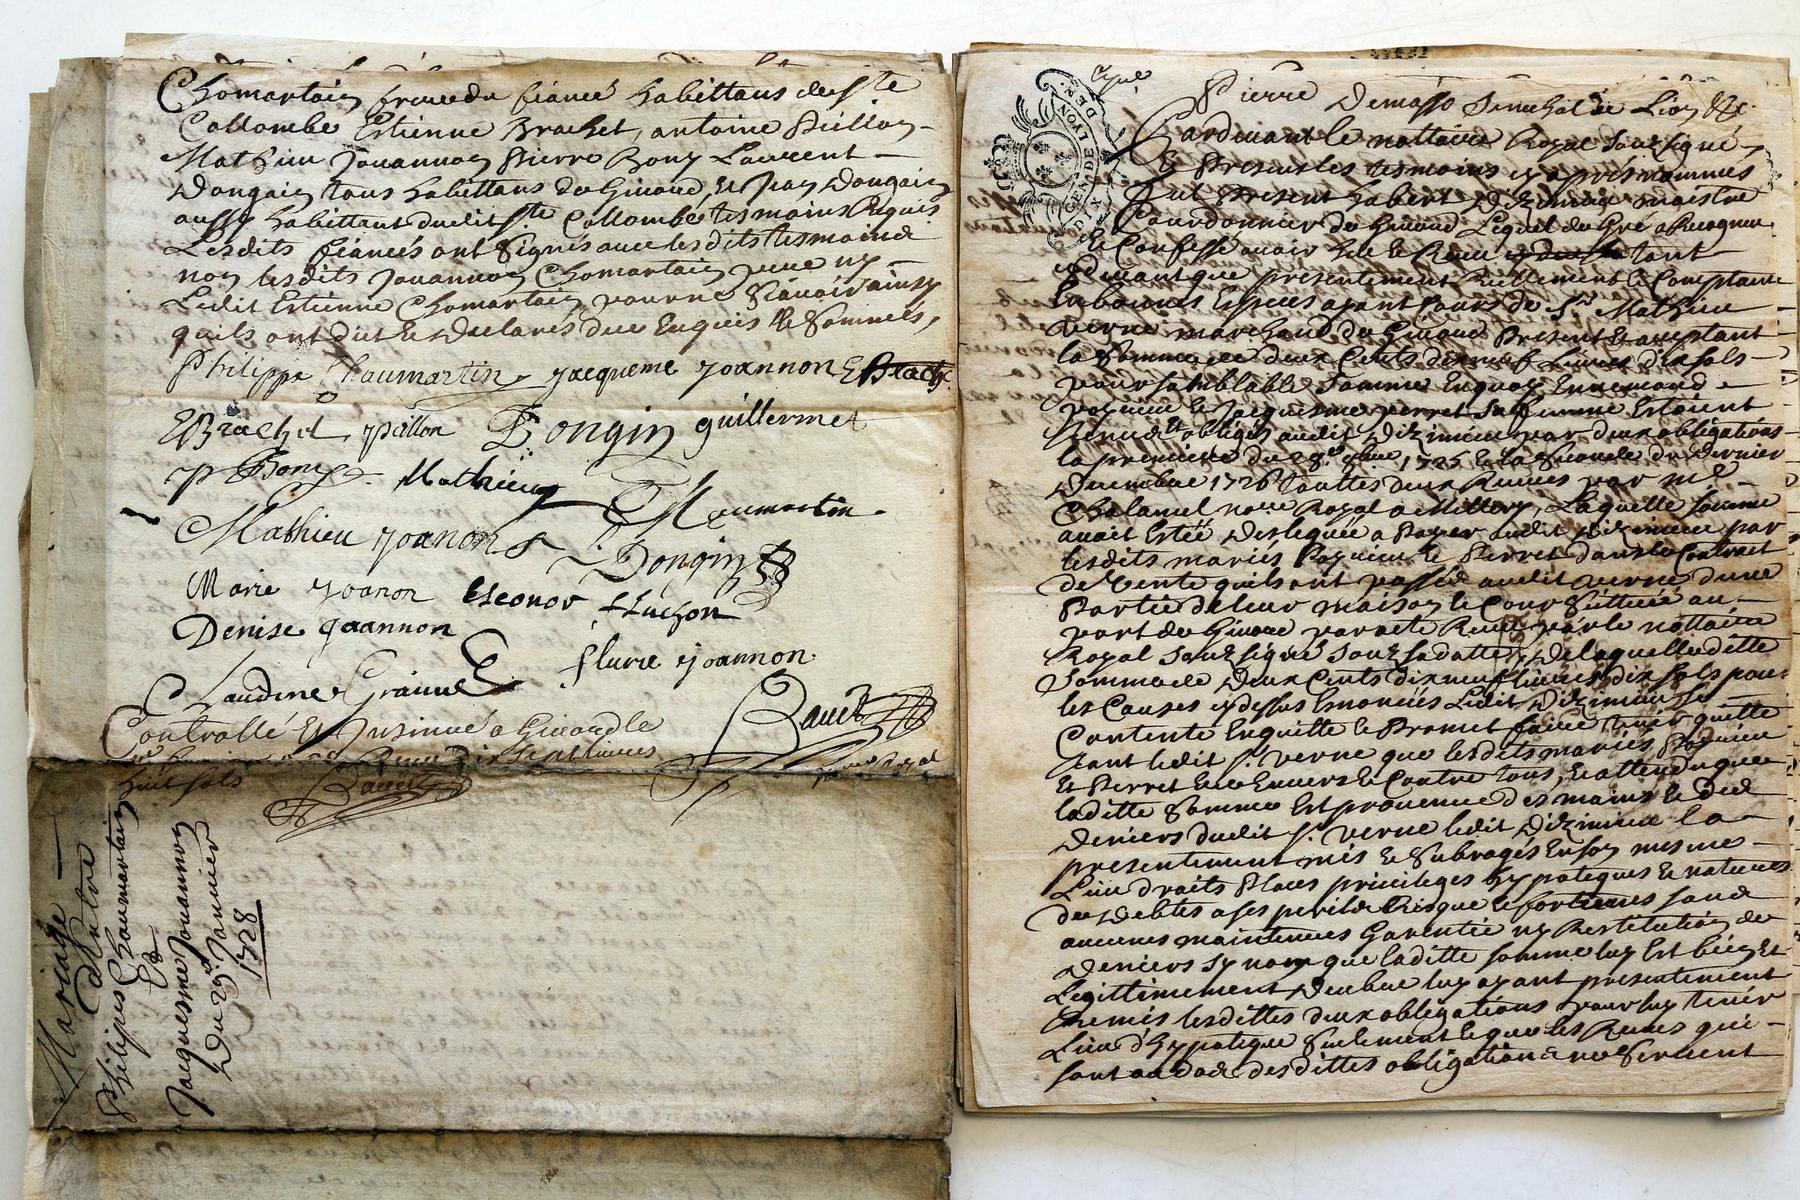 Chomartain frere du fiancé habittans de Ste
Collombe Estienne Brachet, antoine Pillon
Mathieu Jouannon Pierre Bony Laurent
Dongain tous habittans de Givord, et Jean Dongain
aussy habittant dudit Ste Collombe tesmoins Requis
Lesdits fiancés ont signés avec lesdits tesmoins
non lesdits Jouannon Chomartain pere ny
Ledit Estienne Chomartain pour ne sçavoir ainsy
quils ont dit et declarés de ce Enquis et sommés,
Philippe Chaumartin Jacqueme Joannon EBrach
EBrachet pillon Dongin guillermet
p Bony Mathieu Chaumartin
Mathieu Joanon Dongin
Marie Joanon Eleonor fluchon
Denise Joannon
Claudine Grainne flurie Joannon
Controllé et Insinué a Givord le
Bauet
Receu Dix sept livres
huit sols Bauet
Mariage
Dentre
Philipes Chaumartain
Et
Jacquesme Jouannon
Du 29e Janvier
1728
GEN DE LYON
DIX DEN
Pierre Demasso Senechal de Lion &c
Pardevant le nottaire Royal souzsigné,
Et Presens les tesmoins cy aprés nommés
fut Present habert Diziminieu maistre
Courdonnier de Givord Lequel de Gré a Recognu
et Confessé avoir heu et Receu tant
cydevant que presentement Reellement et Comptant
En bonnes Especes ayant Cours de Sr. Mathieu
verne marchand de Givord Present et acceptant
la Somme de deux Cents dixneuf Livres dix sols
pour semblable Somme En quoy Ennemond
payieu et Jacquesme perret sa femme Estoient
tenus et obligés audit Diziminieu par deux obligations
la premiere du 28e 1725 et la seconde du dernier
Decembre 1726 touttes deux Receues par Me
Chalamel nore Royal a Millery, Laquelle somme
avait Esté Desleguée a Payer audit Diziminieu par
lesdits mariés Payieu et Perret dans le Contrait
de Vente quils ont passé audit verne d'une
Partie de leur maison et Cour Scittuée au
port de Givord par acte Receu par le nottaire
Royal Souzsigné Souz sa datte, De laquelle ditte
Somme de Deux Cents dixneuf livres dix sols pour
les Causes cy dessus Enoncées Ledit Diziminieu se
Contente En quitte et Promet faire tenir quitte
tant ledit Sr. verne que lesdits mariés Payieu
Et Perret Envers et Contre tous, Et attendu que
laditte Somme Est provenue des mains et des
Deniers dudit Sr. verne ledit Diziminieu la
presentement mis et Subrogés En son mesme
Lieu droits Places privileges hypoteques et natures
de Debtes a ses perils Risque et fortunes sans
aucunes maintenues Garentie ny Restitution de
Deniers Sy non que laditte somme luy Est bien Et
Legittimement Deube luy ayant presentement
Remis lesdittes deux obligations pour luy tenir
Lieu d'hypoteque Seulement et que les Receus qui
sont au dos desdittes obligations ne Servent